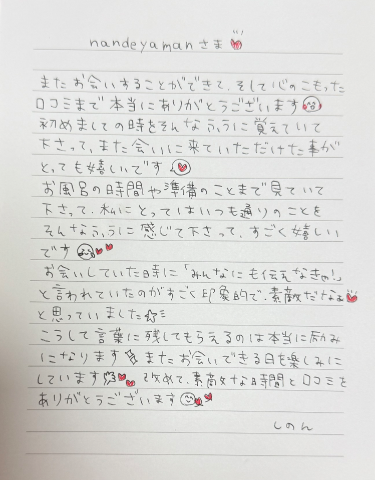 nandeyamanさま
またお会いすることができて、そして心のこもった
口コミまで本当にありがとうございます
初めましての時をそんなふうに覚えていて
下さって、また会いに来ていただけた事が
とっても嬉しいです
お風呂の時間や準備のことまで見ていて
下さって、私にとってはいつも通りのことを
そんなふうに感じて下さって、すごく嬉しい
です
お会いしていた時に「みんなにも伝えなきゃ!」
と言われていたのがすごく印象的で、素敵だなぁ
と思っていました
こうして言葉に残してもらえるのは本当に励み
になります またお会いできる日を楽しみに
しています 改めて、素敵な時間と口コミを
ありがとうございます
しのん